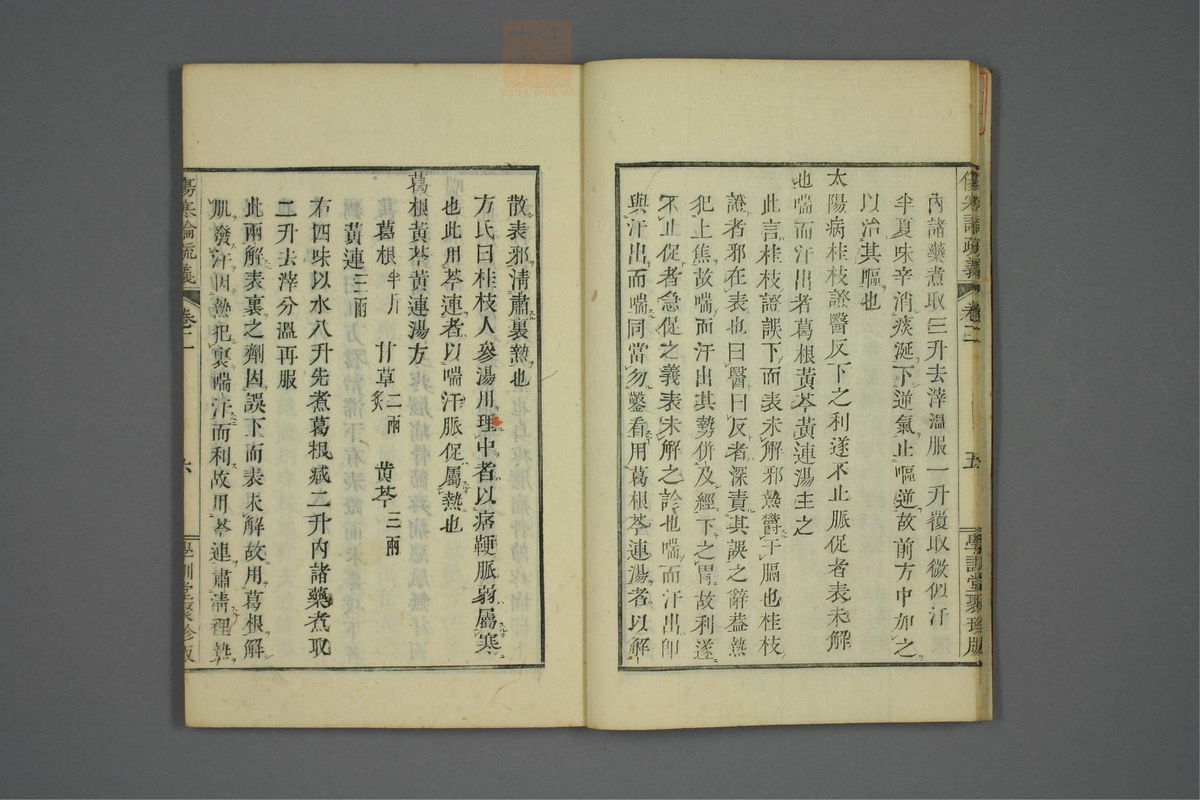 傷寒論疏義 卷二 五 學訓堂聚珍版
內諸藥煮取三升去滓溫服一升覆取微似汗
半夏味辛消痰涎下逆氣止嘔逆故前方中加之
以治其嘔也
太陽病桂枝證醫反下之利遂不止脈促者表未解
也喘而汗出者葛根黃芩黃連湯主之
此言桂枝證誤下而表未解邪熱鬱于膈也桂枝
證者邪在表也曰醫曰反者深責其誤之辭葢熱
犯上焦故喘而汗出其勢併及經下之胃故利遂
不止促者急促之義表未解之診也喘而汗出卽
與汗出而喘同當勿鑿看用葛根芩連湯者以解
散表邪淸肅裏熱也
方氏曰桂枝人參湯用理中者以痞鞕脈弱屬寒
也此用芩連者以喘汗脈促屬熱也
葛根黃芩黃連湯方
葛根半斤 甘草二兩炙 黃芩三兩
黃連三兩
右四味以水八升先煮葛根減二升內諸藥煮取
二升去滓分溫再服
此兩解表裏之劑因誤下而表未解故用葛根解
肌發汗因熱犯裏喘汗而利故用芩連肅淸裡熱
傷寒論疏義 卷二 六 學訓堂聚珍版